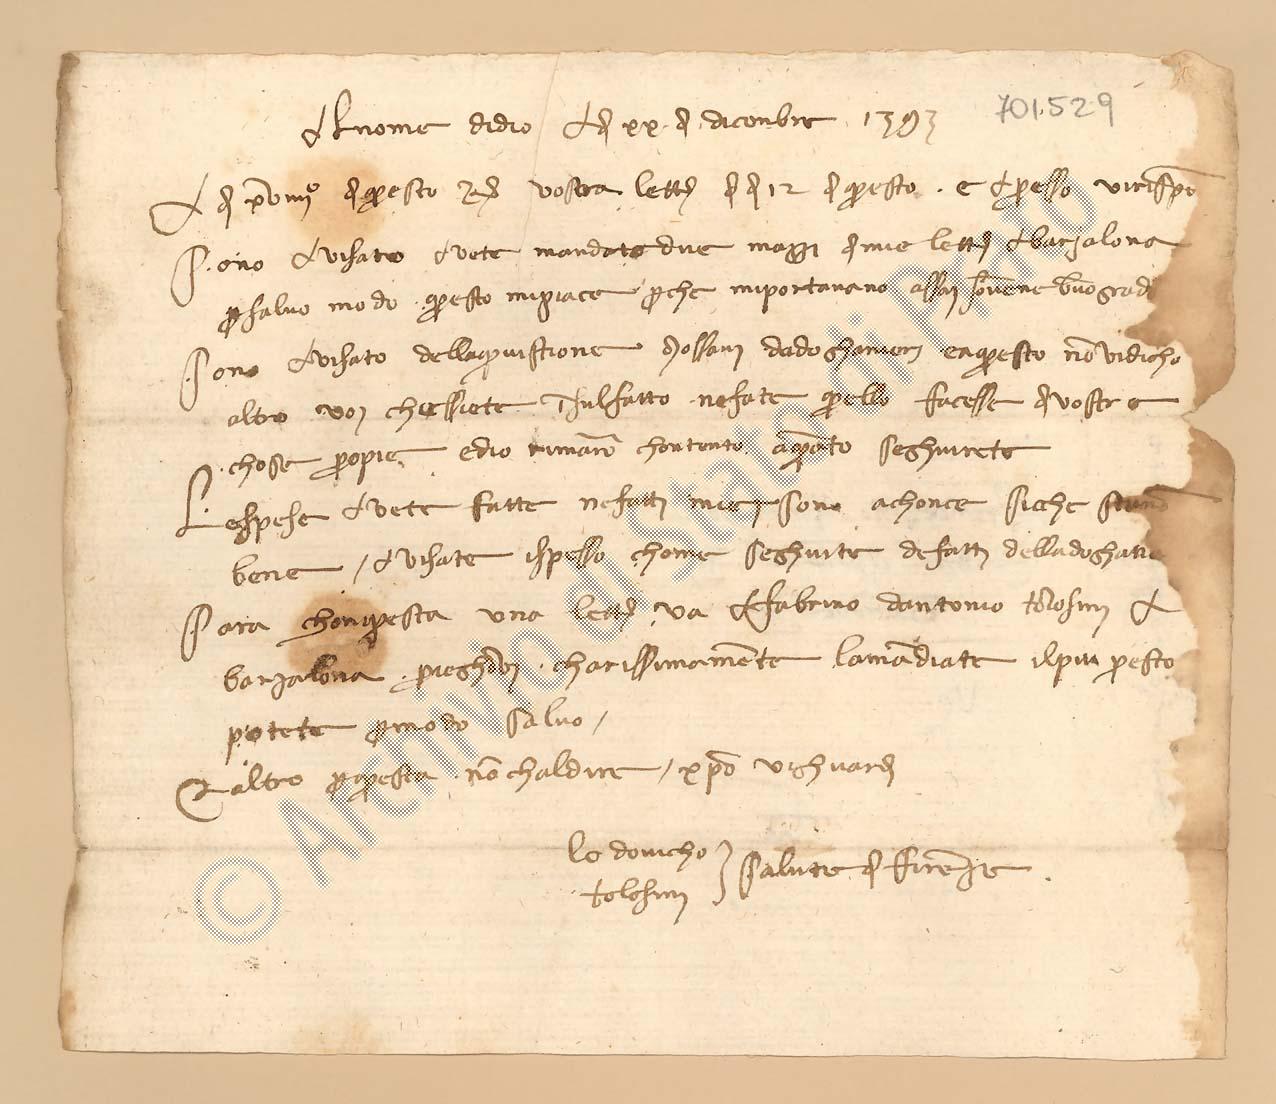 Al nome di dio A dì xx di dicenbre 1393
701.529
A dì xviiiº di questo R vostra lettera di dì 12 di questo e apresso vi rispo
Sono avisato avete mandato due mazzi di mie lettere a barzalona
per salvo modo questo mi piace perche inportavano assai buogrado
Sono avisato della quistione de doghanieri e a questo no vi dicho
altro voi che siete in sul fatto ne fate quello facesse di vostre
chose propie ed io rimarò chontento a quanto seghuirete
Le spese avete fatte ne fatti miei sono achonce siche stanno
bene / avisate ispesso chome seghuite de fatti della doghana
Sara chon questa una lettera va a fabrino dantonio tolosini a
barzalona preghovi charissimamente la mandiate il piu presto
potete per modo salvo /
E altro per questa no chal dire / xpo vi ghuardi
lodovicho
tolosini } salute di firenze
© Archivio di Stato di Prato